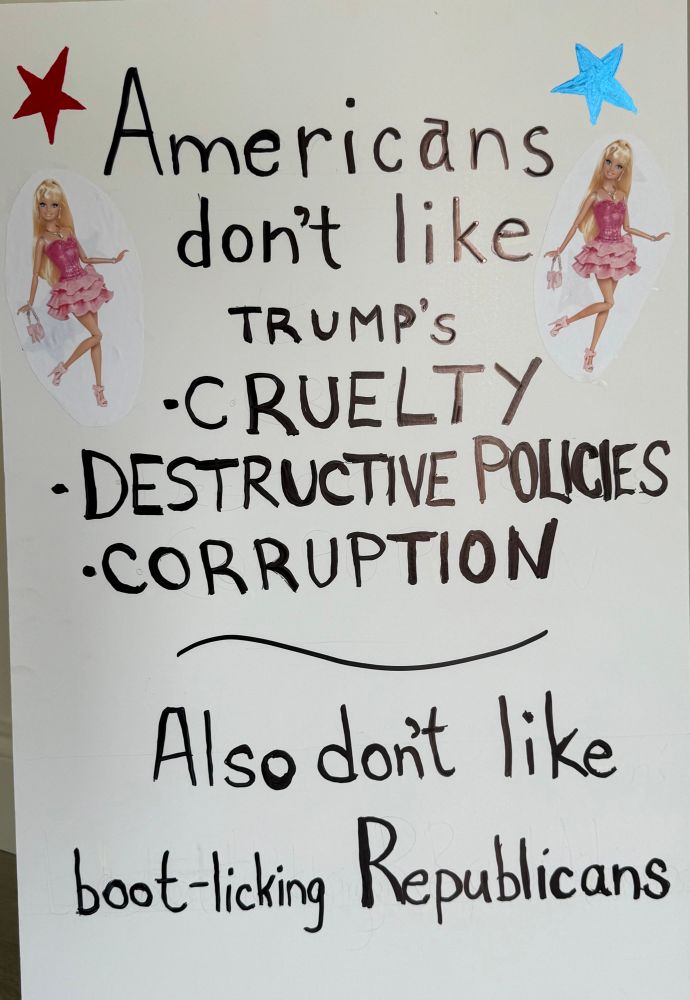 Americans
don't like
TRUMP's
•CRUELTY
•DESTRUCTIVE POLICIES
•CORRUPTION
Also don't like
boot-licking Republicans